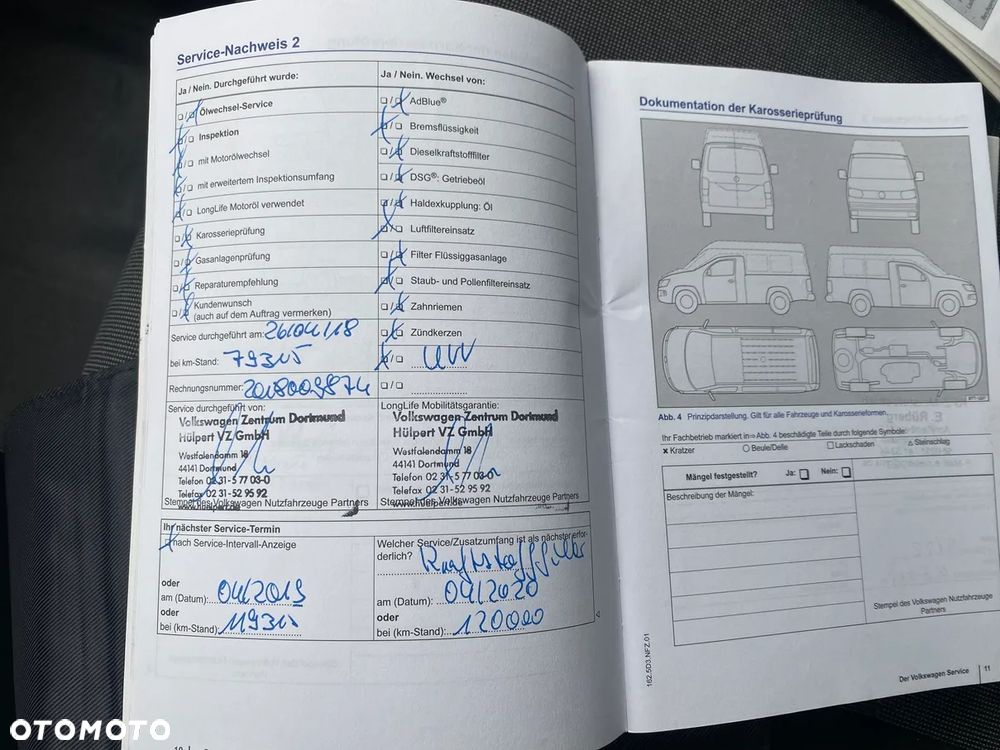 Service-Nachweis 2
Ja / Nein. Durchgeführt wurde:
Ölwechsel-Service
Inspektion
mit Motorölwechsel
mit erweitertem Inspektionsumfang
LongLife Motoröl verwendet
Karosserieprüfung
Gasanlagenprüfung
Reparaturempfehlung
Kundenwunsch
(auch auf dem Auftrag vermerken)
Service durchgeführt am: 26/04/18
bei km-Stand: 79315
Rechnungsnummer: 2018009874
Ja / Nein. Wechsel von:
AdBlue®
Bremsflüssigkeit
Dieselkraftstofffilter
DSG®: Getriebeöl
Haldexkupplung: Öl
Luftfiltereinsatz
Filter Flüssiggasanlage
Staub- und Pollenfiltereinsatz
Zahnriemen
Zündkerzen
Service durchgeführt von:
Volkswagen Zentrum Dortmund
Hülpert VZ GmbH
Westfalendamm 18
44141 Dortmund
Telefon 02 31-5 77 03-0
Telefax 02 31-52 95 92
www.huelpert.de
Stempel des Volkswagen Nutzfahrzeuge Partners
LongLife Mobilitätsgarantie:
Volkswagen Zentrum Dortmund
Hülpert VZ GmbH
Westfalendamm 18
44141 Dortmund
Telefon 02 31-5 77 03-0
Telefax 02 31-52 95 92
www.huelpert.de
Stempel des Volkswagen Nutzfahrzeuge Partners
Ihr nächster Service-Termin
nach Service-Intervall-Anzeige
oder
am (Datum): 04/2019
oder
bei (km-Stand): 119315
Welcher Service/Zusatzumfang ist als nächster erfor-
derlich? Kraftstofffilter
am (Datum): 04/2020
oder
bei (km-Stand): 120000
Dokumentation der Karosserieprüfung
Abb. 4 Prinzipdarstellung. Gilt für alle Fahrzeuge und Karosserieformen.
Ihr Fachbetrieb markiert in ⇒ Abb. 4 beschädigte Teile durch folgende Symbole:
× Kratzer ○ Beule/Delle □ Lackschaden △ Steinschlag
Mängel festgestellt? Ja: Nein:
Beschreibung der Mängel:
Stempel des Volkswagen Nutzfahrzeuge
Partners
162.5D3.NFZ.01
Der Volkswagen Service 11
OTOMOTO